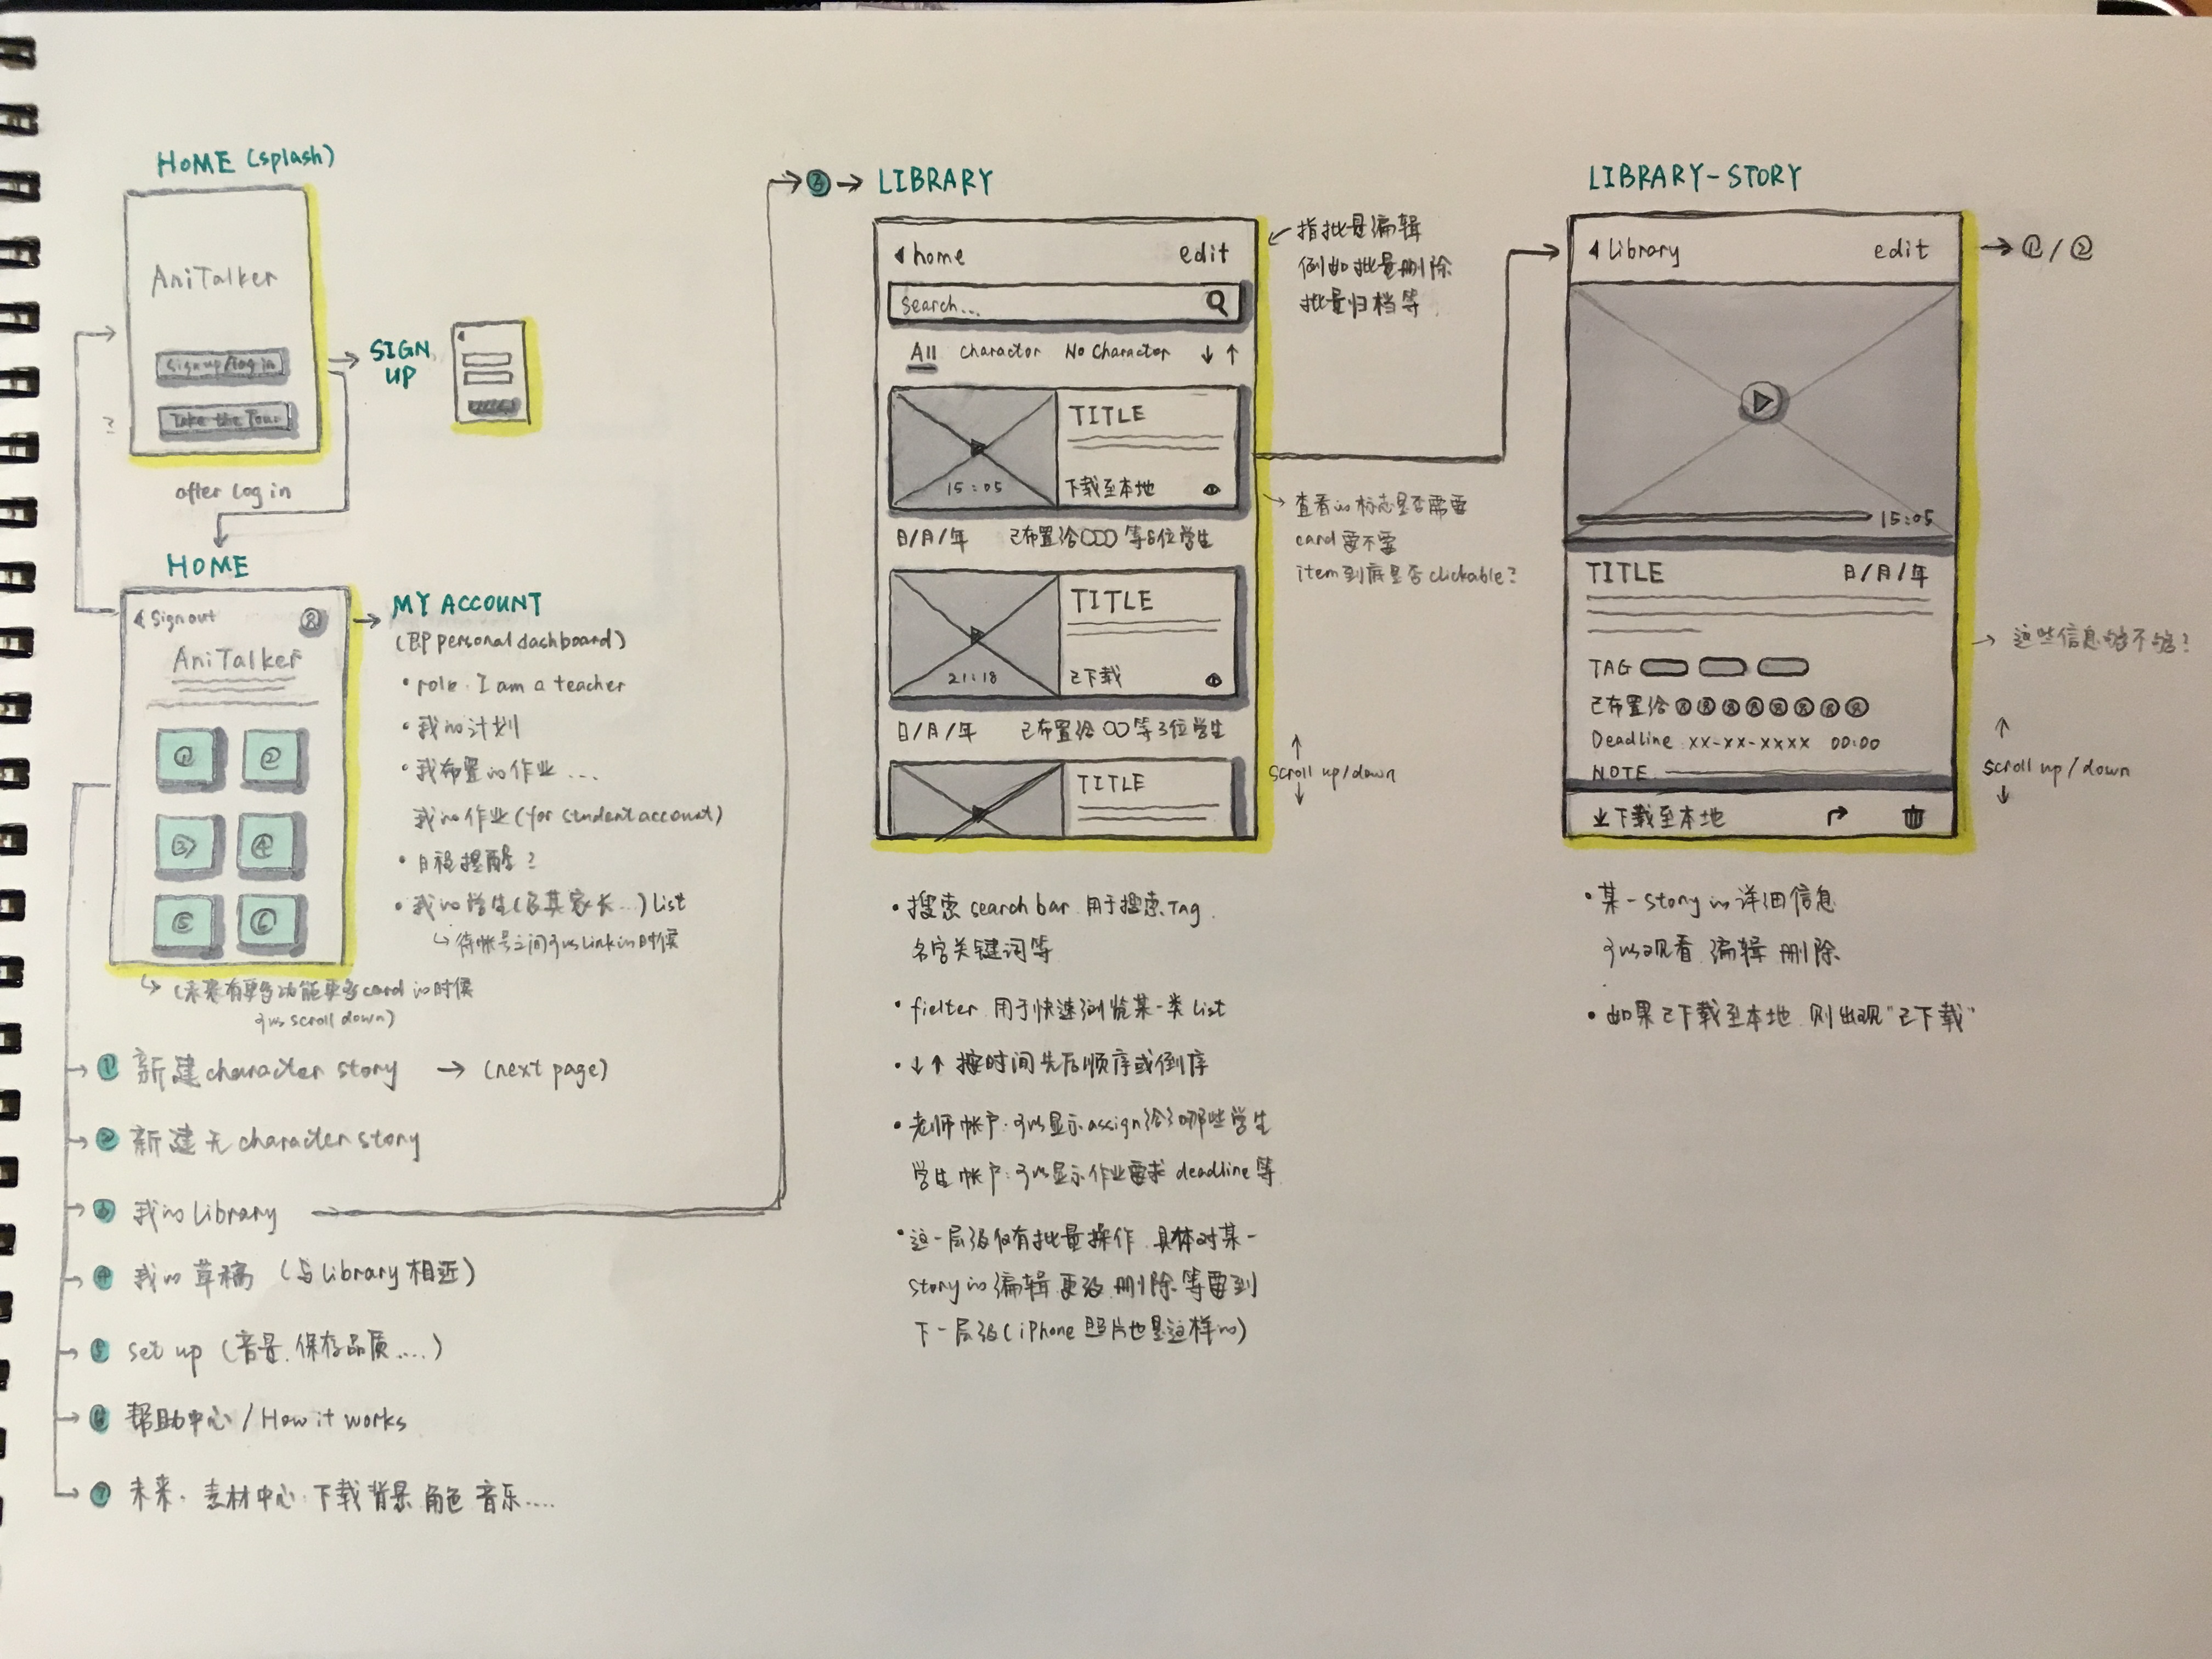 HOME (splash)
AniTalker
Sign up/log in
Take the Tour
?
SIGN UP
after log in
HOME
Sign out
AniTalker
①
②
③
④
⑤
⑥
MY ACCOUNT
(即 personal dashboard)
• role. I am a teacher
• 我的计划
• 我布置的作业...
我的作业 (for student account)
• 日程提醒?
• 我的学生(及其家长...) List
待帐号之间可以link的时候
(未来有更多功能更多card的时候
可以scroll down)
① 新建 character story → (next page)
② 新建无 character story
③ 我的 Library
④ 我的草稿 (与 Library 相近)
⑤ set up (音量. 保存品质....)
⑥ 帮助中心 / How it works
⑦ 未来. 素材中心. 下载背景 角色 音乐....
③ → LIBRARY
home edit
Search...
All Charactor No Charactor ↓ ↑
TITLE
15:05
下载至本地
日/月/年 已布置给○○○等6位学生
TITLE
21:18
已下载
日/月/年 已布置给○○等3位学生
TITLE
指批量编辑
例如批量删除
批量归档等
查看的标志是否需要
card要不要
item到底是否clickable?
scroll up/down
• 搜索 search bar 用于搜索 Tag.
名字关键词等
• fielter 用于快速浏览某一类 list
• ↓↑ 按时间先后顺序或倒序
• 老师帐户: 可以显示assign给了哪些学生
学生帐户: 可以显示作业要求 deadline 等
• 这一层级仅有批量操作 具体对某一
story的编辑 更改 删除等要到
下一层级 (iPhone 照片也是这样的)
LIBRARY-STORY
Library edit
→ ① / ②
15:05
TITLE 日/月/年
TAG
已布置给
Deadline xx-xx-xxxx 00:00
NOTE
下载至本地
这些信息够不够?
scroll up/down
• 某一story的详细信息
可以观看 编辑 删除
• 如果已下载至本地 则出现"已下载"